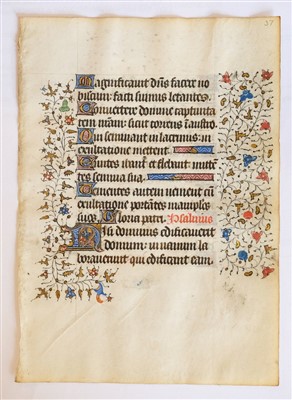 37
Magnificavit dñs facere no
biscum: facti sumus letantes.
Convertere domine captivita
tem nr̃am: sicut torrens ĩ austro.
Qui seminant in lacrimis: in
exultatione mettent.
Euntes ibant et flebant: mitte
tes semina sua.
Venientes autem venient cũ
exultatione portãtes manipulos
suos. Gloria patri. Psalmus
Nisi dominus edificaverit
domum: in vanum la
boraverunt qui edificant eam.